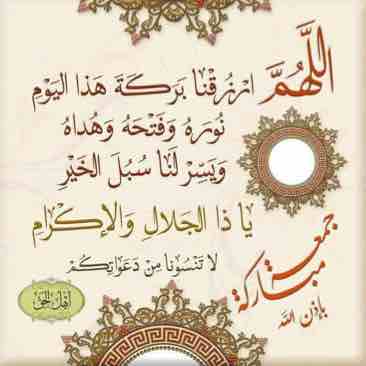 اللَّهُمَّ ارزُقْنا بَرَكَةَ هَذا اليَوْمِ
نُورَهُ وَفَتْحَهُ وَهُداهُ
وَيَسِّرْ لَنا سُبُلَ الخَيْرِ
يا ذا الجَلالِ وَالإكْرامِ
لا تَنْسُونا مِنْ دَعَواتِكُمْ
جمعة مباركة
بإذن الله